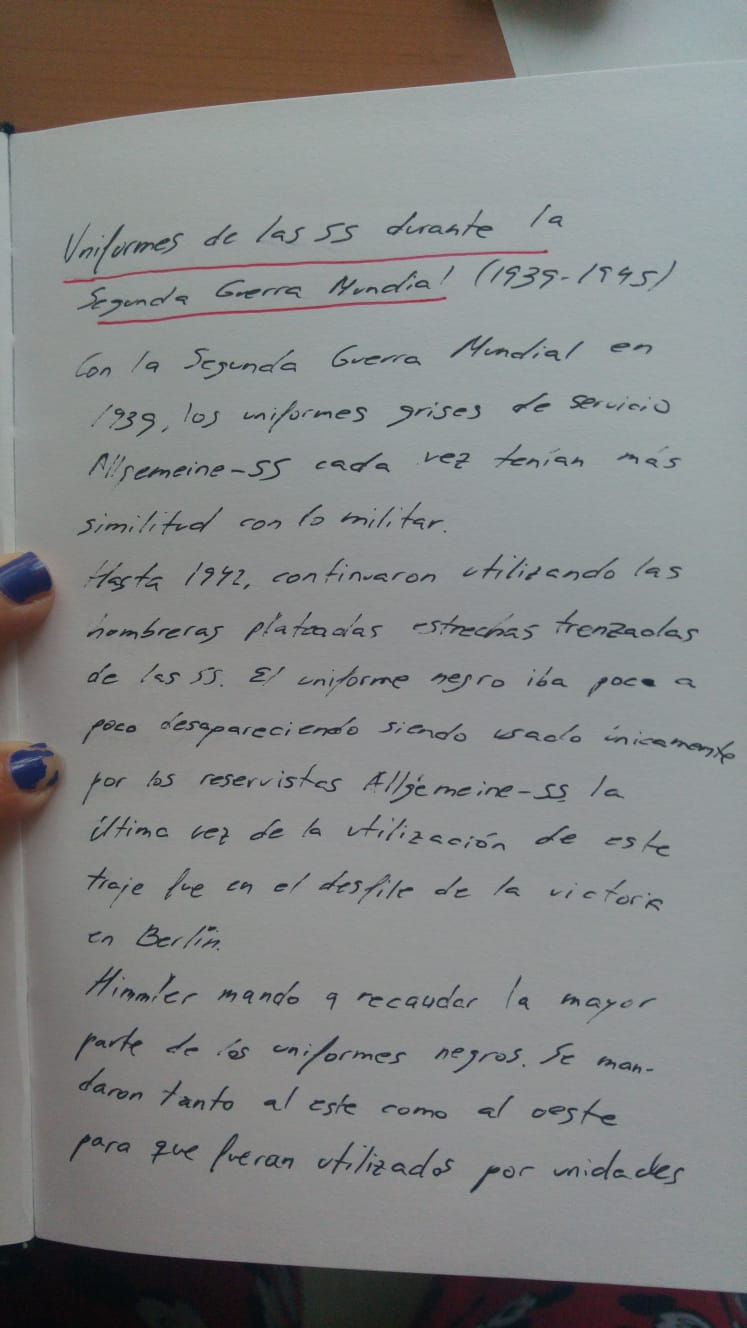 Uniformes de las SS durante la
Segunda Guerra Mundial (1939-1945)
Con la Segunda Guerra Mundial en
1939, los uniformes grises de servicio
Allgemeine-SS cada vez tenían más
similitud con lo militar.
Hasta 1942, continuaron utilizando las
hombreras plateadas estrechas trenzadas
de las SS. El uniforme negro iba poco a
poco desapareciendo siendo usado únicamente
por los reservistas Allgemeine-SS la
última vez de la utilización de este
traje fue en el desfile de la victoria
en Berlín.
Himmler mando a recaudar la mayor
parte de los uniformes negros. Se man-
daron tanto al este como al oeste
para que fueran utilizados por unidades